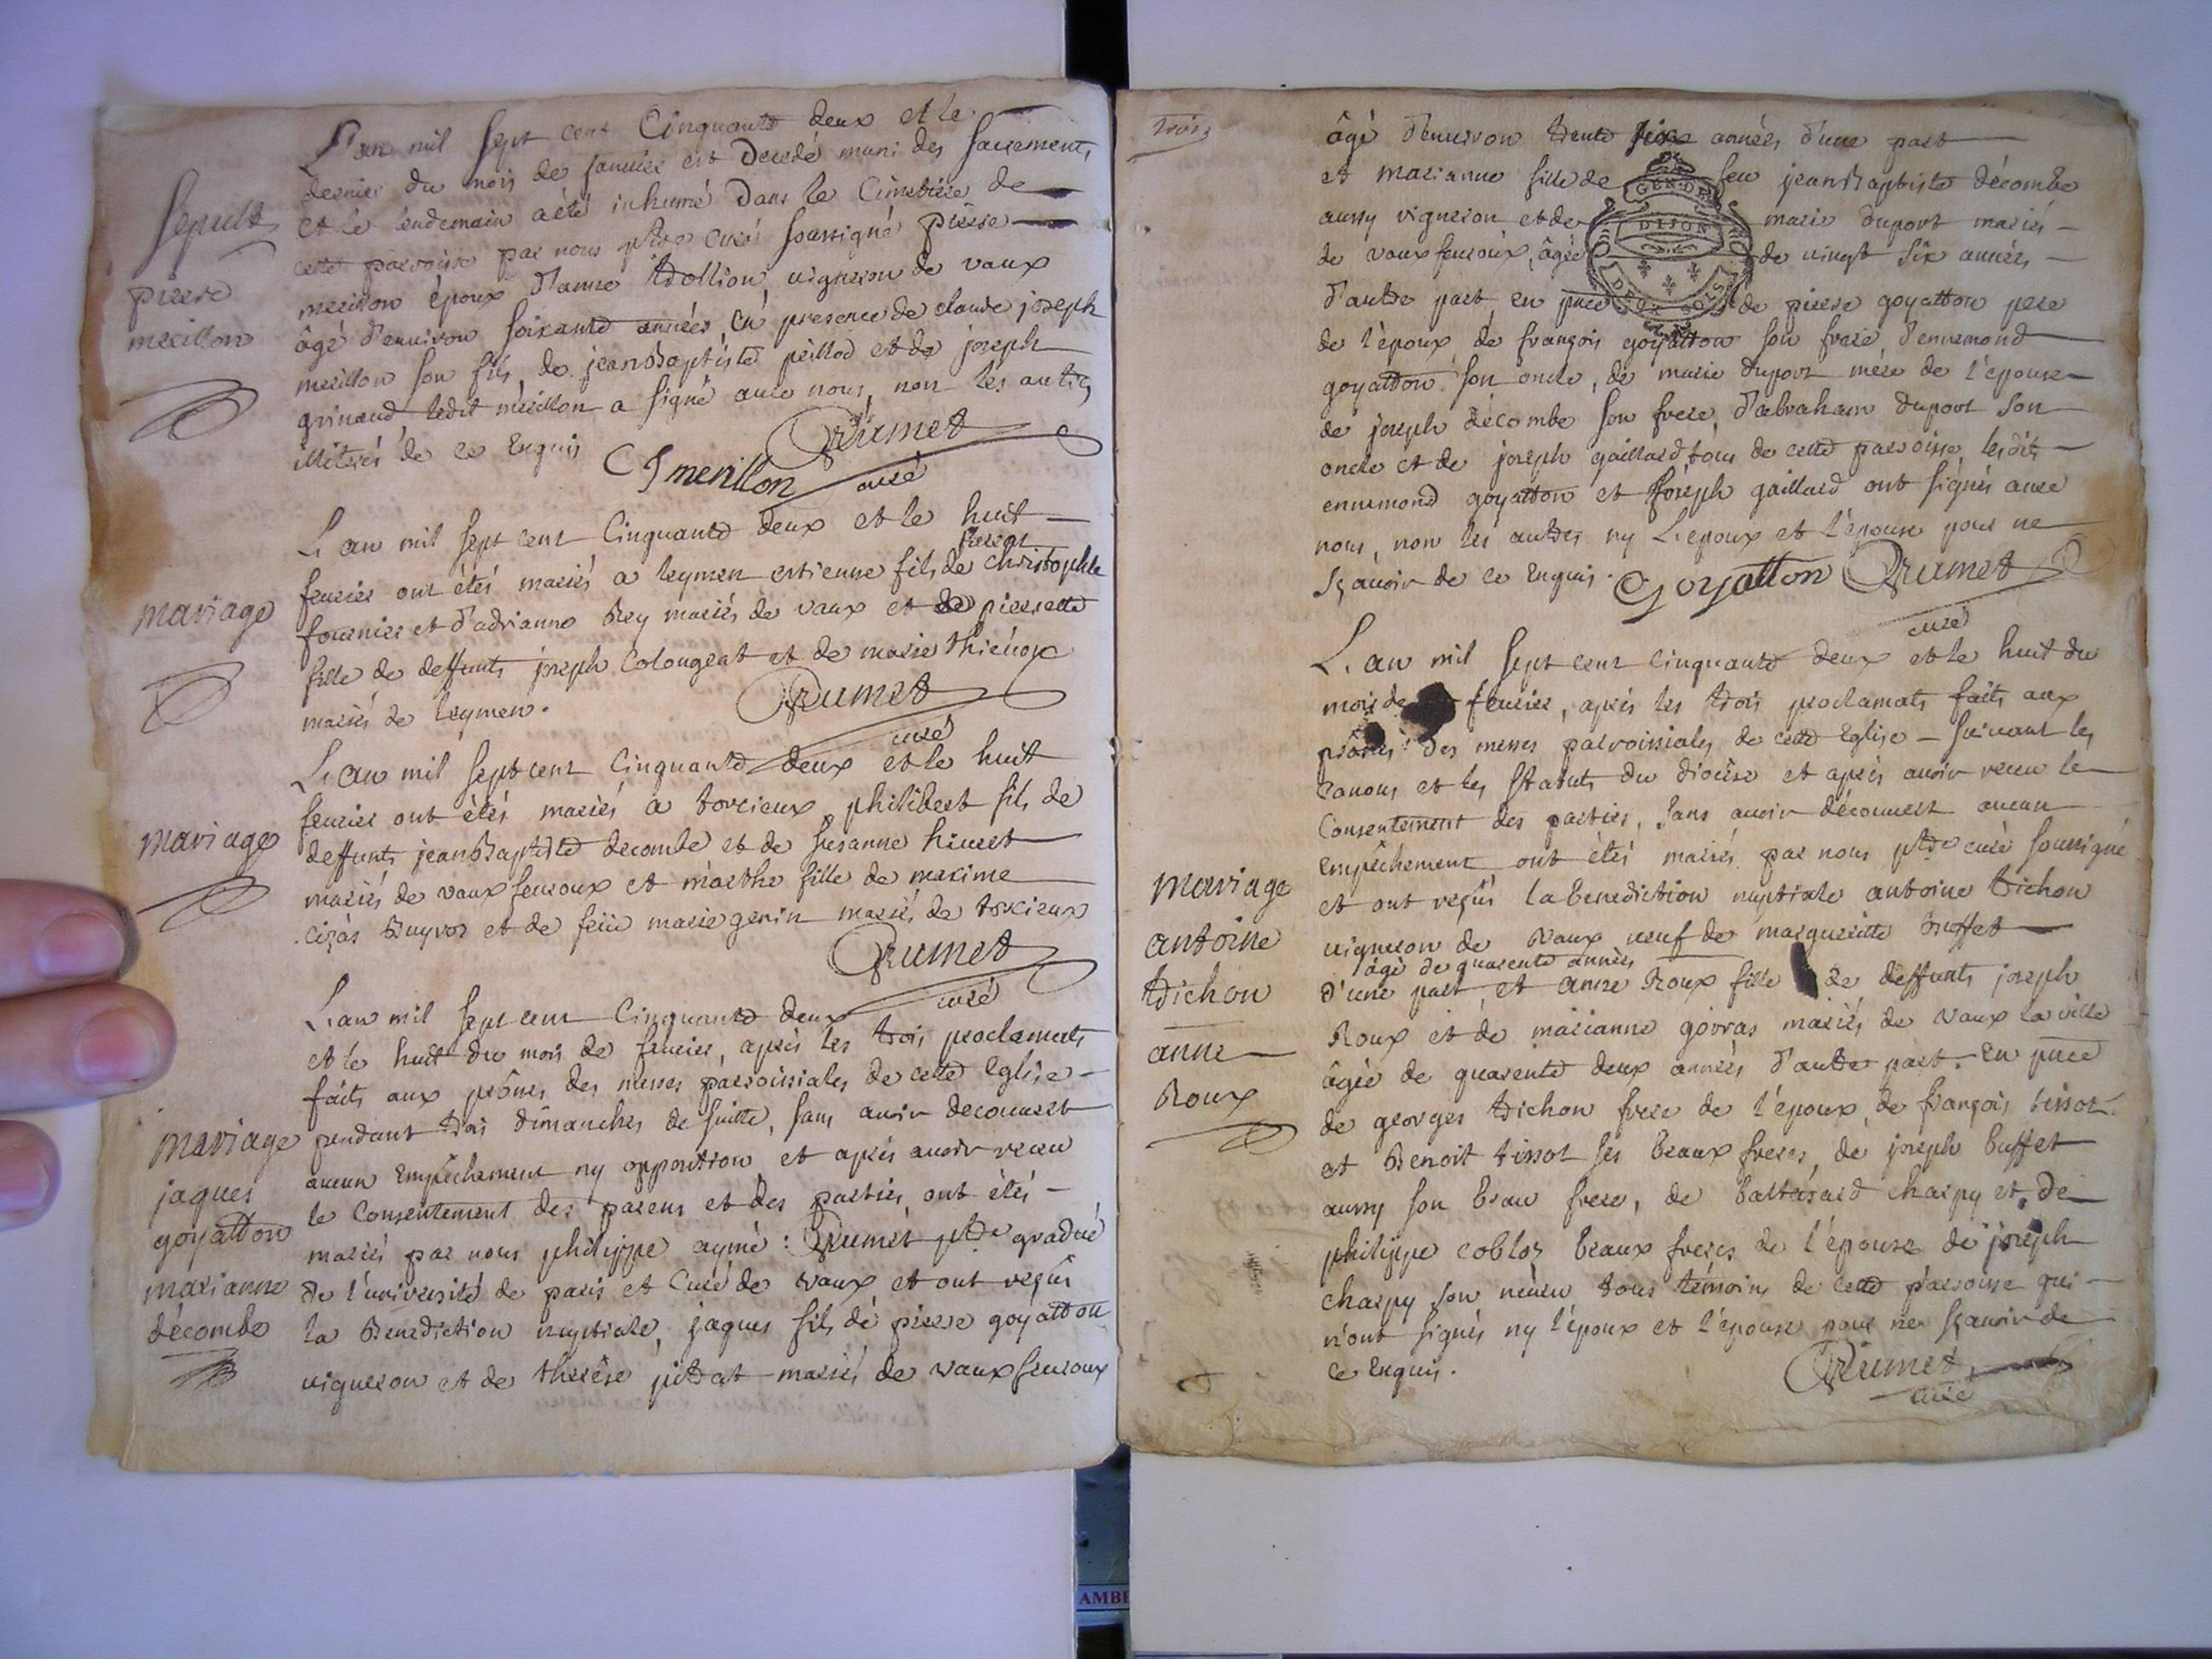 L'an mil sept cent Cinquante deux et le
dernier du mois de janvier est decedé muni des sacrements
et le lendemain a été inhumé dans le Cimetiere de
cette parroisse par nous ptre curé soussigné pierre
merillon époux d'anne vigneron de vaux
âgé d'environ soixante années, en presence de claude joseph
merillon son fils, de jean Baptiste peillod et de joseph
grinand, ledit merillon a signé avec nous, non les autres
illiterés de ce Enquis
CJ merillon Rumet
curé
sepult
pierre
merillon
L'an mil sept cent Cinquante deux et le huit
fevrier ont étés mariés a leymen estienne fils de christophle
fournier et d'adrianne Rey mariés de vaux et de pierrette
fille de deffunts joseph Colongeat et de marie thiénox
mariés de leymen.
Rumet
curé
mariage
L'an mil sept cent Cinquante deux et le huit
fevrier ont étés mariés a torcieux philibert fils de
deffunts jean Baptiste decombe et de susanne
mariés de vaux fevroux et marthe fille de maxime
et de feüe marie genin mariés de torcieux
Rumet
curé
mariage
L'an mil sept cent Cinquante deux
et le huit du mois de fevrier, après les trois proclamats
faits aux prônes des messes parroissiales de cette Eglise
pendant trois dimanches de suitte, sans avoir decouvert
aucun Empêchement ny opposition et après avoir receu
le Consentement des parens et des parties, ont étés
mariés par nous philippe aymé Rumet ptre gradué
de l'université de paris et Curé de vaux, et ont reçûs
la Benediction nuptiale, jaques fils de pierre goyatton
vigneron et de therése pitrat mariés de vaux fevroux
mariage
jaques
goyatton
marianne
décombe
trois
âgé d'environ trente six années d'une part
et marianne fille de feu jean Baptiste décombe
aussy vigneron et de marie duport mariés
de vaux fevroux, âgée de vingt six années
d'autre part, en pnce de pierre goyatton pere
de l'époux de françois goyatton son frere d'ennemond
goyatton son oncle, de marie duport mére de l'épouse
de joseph décombe son frere, d'abraham duport son
oncle et de joseph gaillard tous de cette parroisse, lesdits
ennemond goyatton et joseph gaillard ont signés avec
nous, non les autres ny L'epoux et l'épouse pour ne
sçavoir de ce Enquis.
Goyatton Rumet
curé
GEN. DE
DIJON
L'an mil sept cent cinquante deux et le huit du
mois de fevrier, après les trois proclamats faits aux
prônes des messes parroissiales de cette Eglise suivant les
Canons et les statuts du diocése et après avoir receu le
Consentement des parties, sans avoir découvert aucun
Empêchement, ont étés mariés par nous ptre curé soussigné
et ont reçûs la benediction nuptiale antoine trichon
vigneron de vaux veuf de margueritte Buffet
âgé de quarente années
d'une part, et anne Roux fille de deffunts joseph
Roux et de marianne govras mariés de vaux la ville
âgée de quarente deux années d'autre part. En pnce
de georges trichon frere de l'époux, de françois tissot
et Benoit tissot ses beaux freres, de joseph buffet
aussy son beau frere, de baltasard charpy et de
philippe cobloz beaux freres de l'épouse de joseph
charpy son néveu tous témoins de cette parroisse qui
n'ont signés ny l'époux et l'épouse pour ne sçavoir de
ce Enquis.
Rumet
curé
Mariage
antoine
trichon
anne
Roux
AMBE